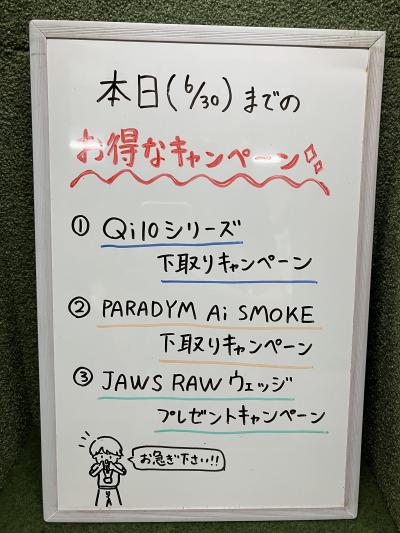 本日(6/30)までの
お得なキャンペーン
① Qi10シリーズ
下取りキャンペーン
② PARADYM Ai SMOKE
下取りキャンペーン
③ JAWS RAW ウェッジ
プレゼントキャンペーン
お急ぎ下さい!!